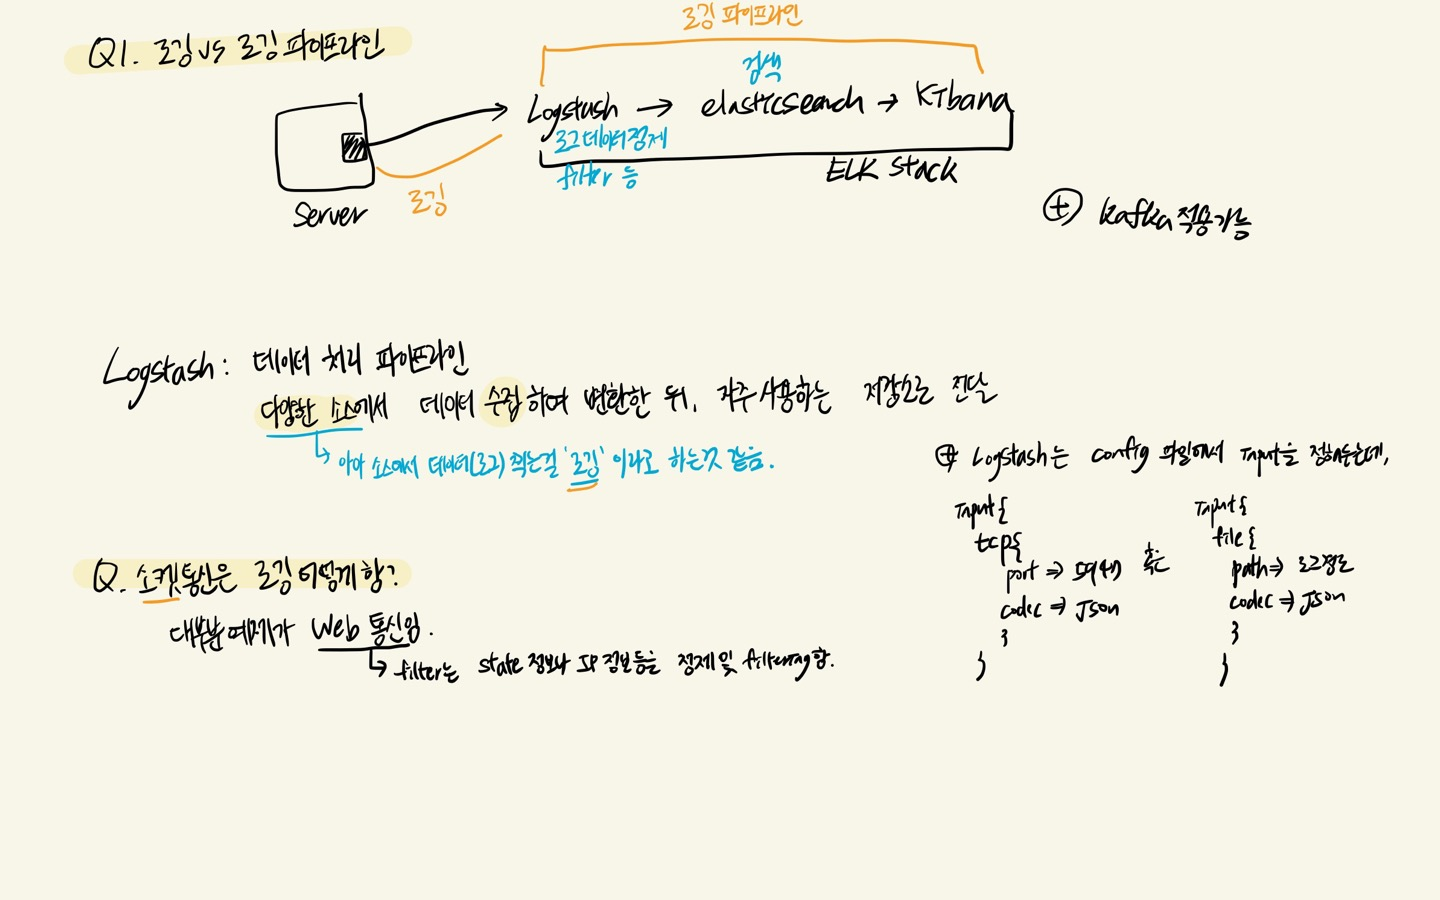 로깅 파이프라인
Q1. 로깅 vs 로깅 파이프라인
검색
Logstash → elasticsearch → Kibana
로그데이터정제
filter 등
ELK Stack
Server
로깅
⊕ kafka 적용가능
Logstash : 데이터 처리 파이프라인
다양한 소스에서 데이터 수집하여 변환한 뒤, 자주 사용하는 저장소로 전달
↳ 아마 소스에서 데이터(로그) 찍는걸 '로깅' 이라고 하는것 같음.
⊕ Logstash는 config 파일에서 Input을 정해주는데,
Input {
tcp {
port ⇒
codec ⇒ Json
}
}
혹은
Input {
file {
path ⇒ 로그경로
codec ⇒ Json
}
}
Q. 소켓통신은 로깅 어떻게 함?
대부분 예제가 Web 통신임.
↳ filter는 state 정보나 IP 정보등을 정제 및 filtering함.